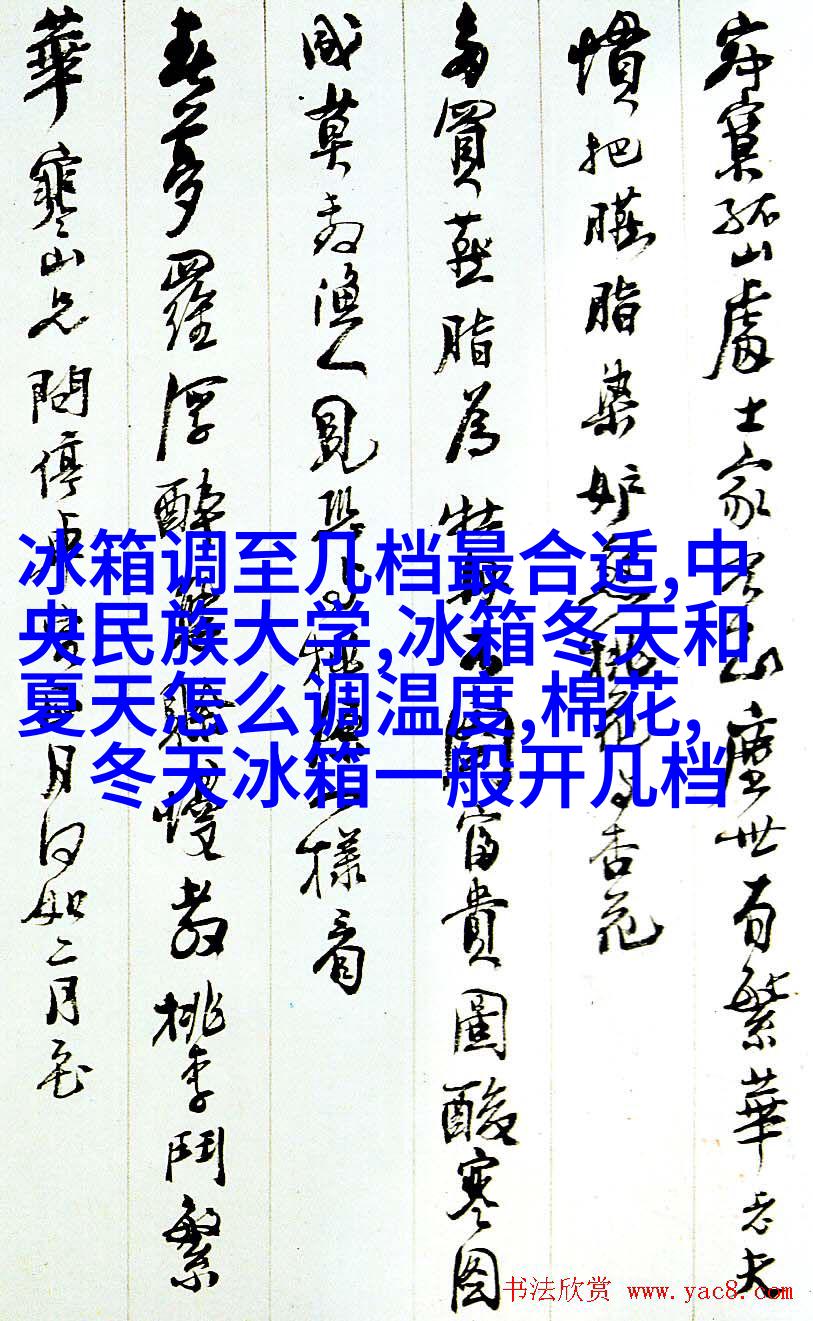 寂寞孤山處士家 塵世有繁華 老夫
慣把臙脂染 杏花
多買燕脂為 富貴圖酸寒图
咸莫教漁人見 樣看
春夢羅浮醉 教桃李鬥繁
華 寒山只問停車 月何如二月花
冰箱调至几档最合适,中
央民族大学,冰箱冬天和
夏天怎么调温度,棉花,
冬天冰箱一般开几档
书法欣赏 www.yac8.com